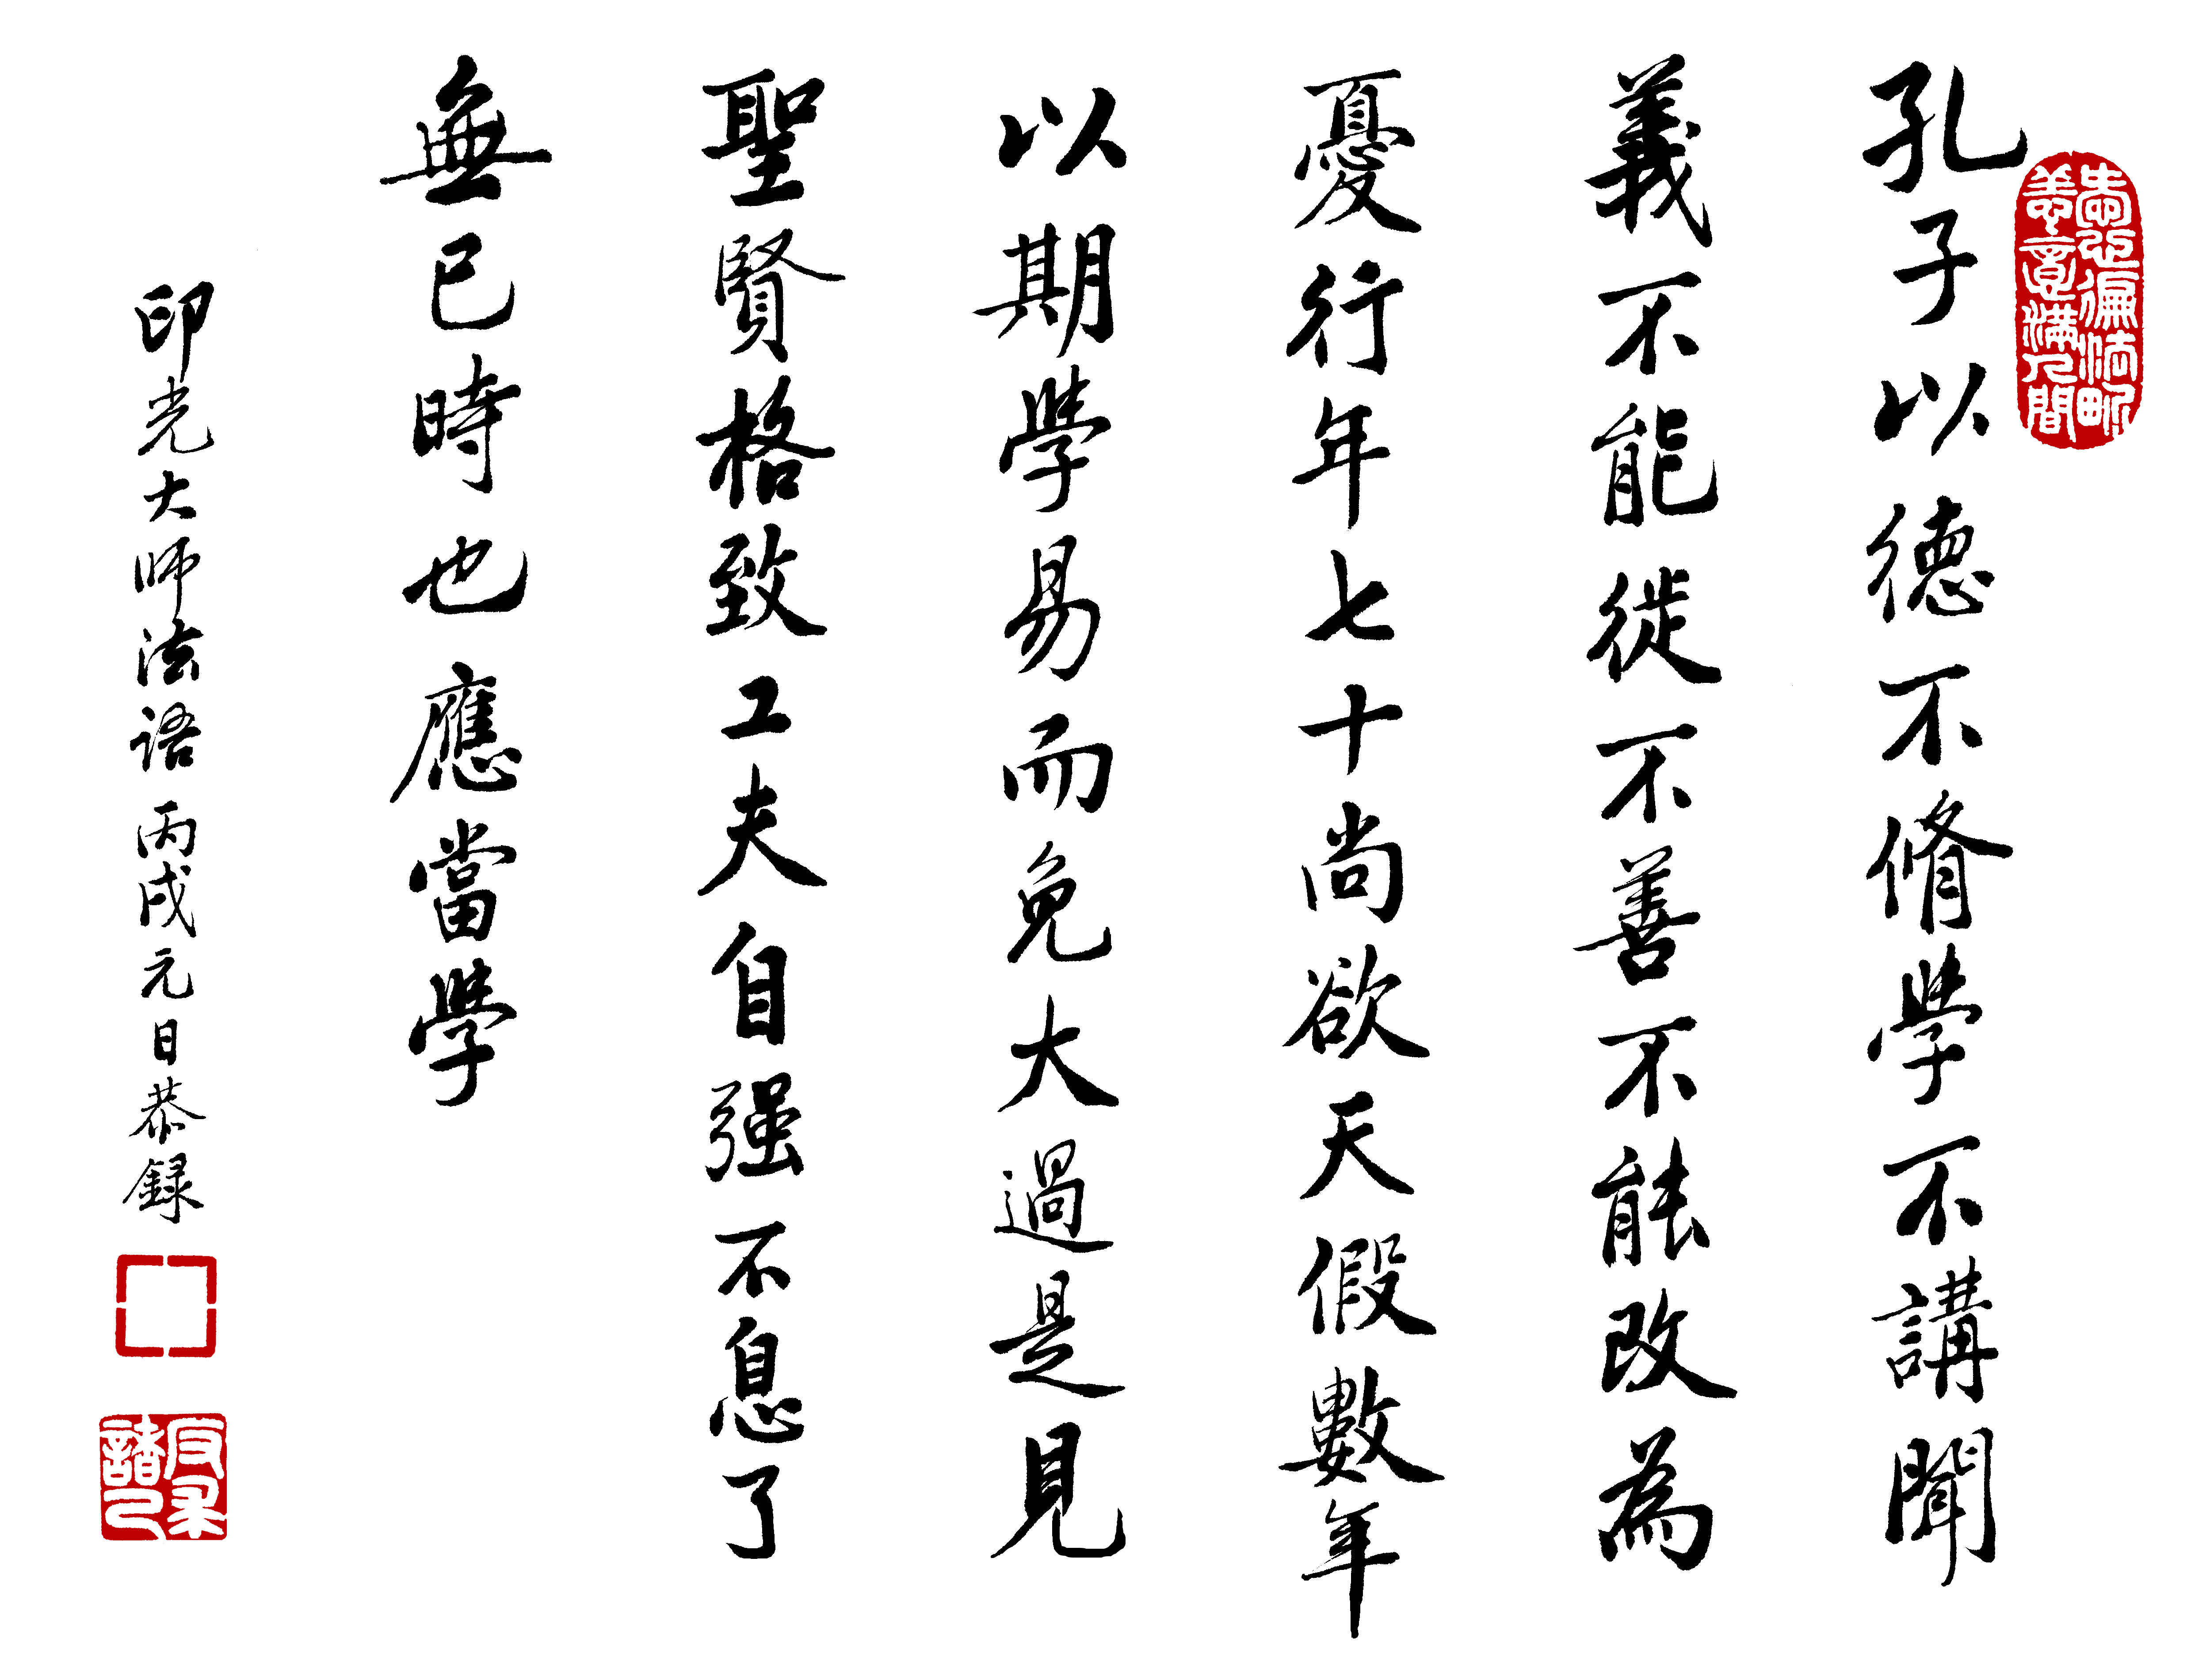 孔子以德不脩學不講聞
義不能徙不善不能改為
憂行年七十尚欲天假數年
以期學易而免大過是見
聖賢格致工夫自强不息了
無已時也應當學
印光大師法語丙戌元日恭録